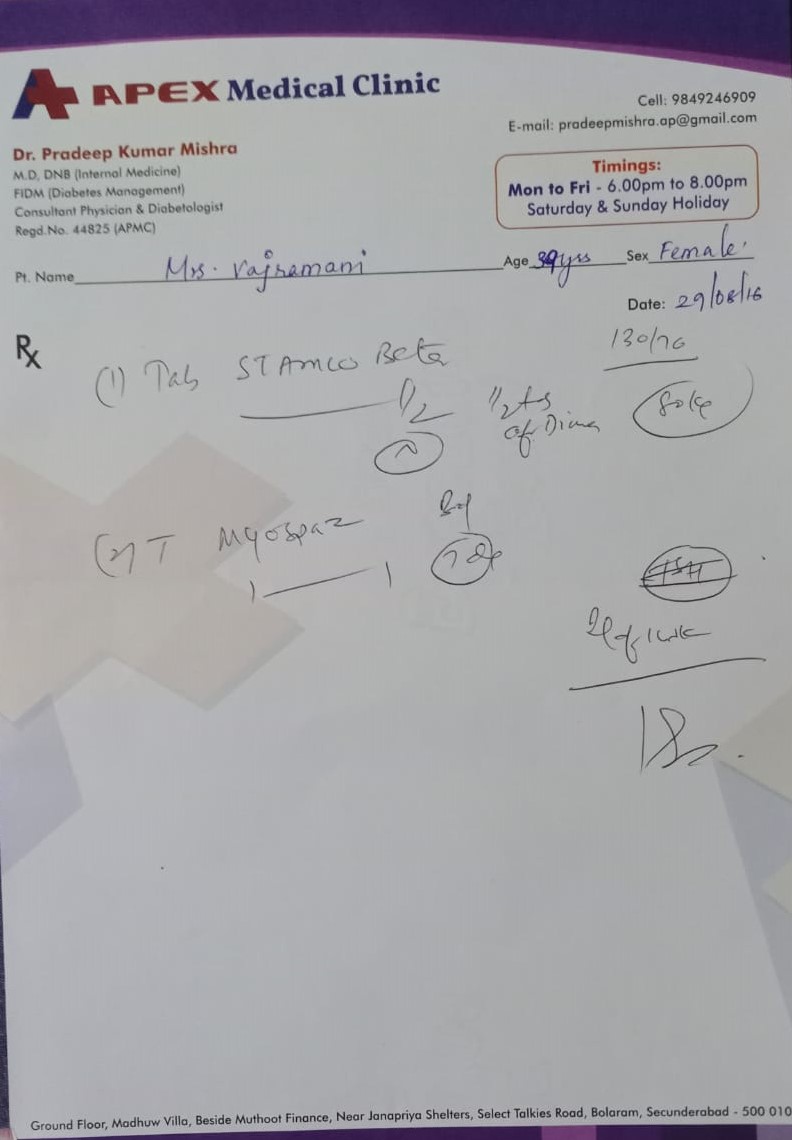 APEX Medical Clinic
Cell: 9849246909
E-mail: pradeepmishra.ap@gmail.com
Dr. Pradeep Kumar Mishra
M.D, DNB (Internal Medicine)
FIDM (Diabetes Management)
Consultant Physician & Diabetologist
Regd.No. 44825 (APMC)
Timings:
Mon to Fri - 6.00pm to 8.00pm
Saturday & Sunday Holiday
Pt. Name Mrs. Vajramani Age 39yrs Sex Female
Date: 29/08/16
Rx
130/70
(1) Tab STAMLO Beta
1/2 1/2
of
(2) T Myospaz
1 1
Ground Floor, Madhuw Villa, Beside Muthoot Finance, Near Janapriya Shelters, Select Talkies Road, Bolaram, Secunderabad - 500 010